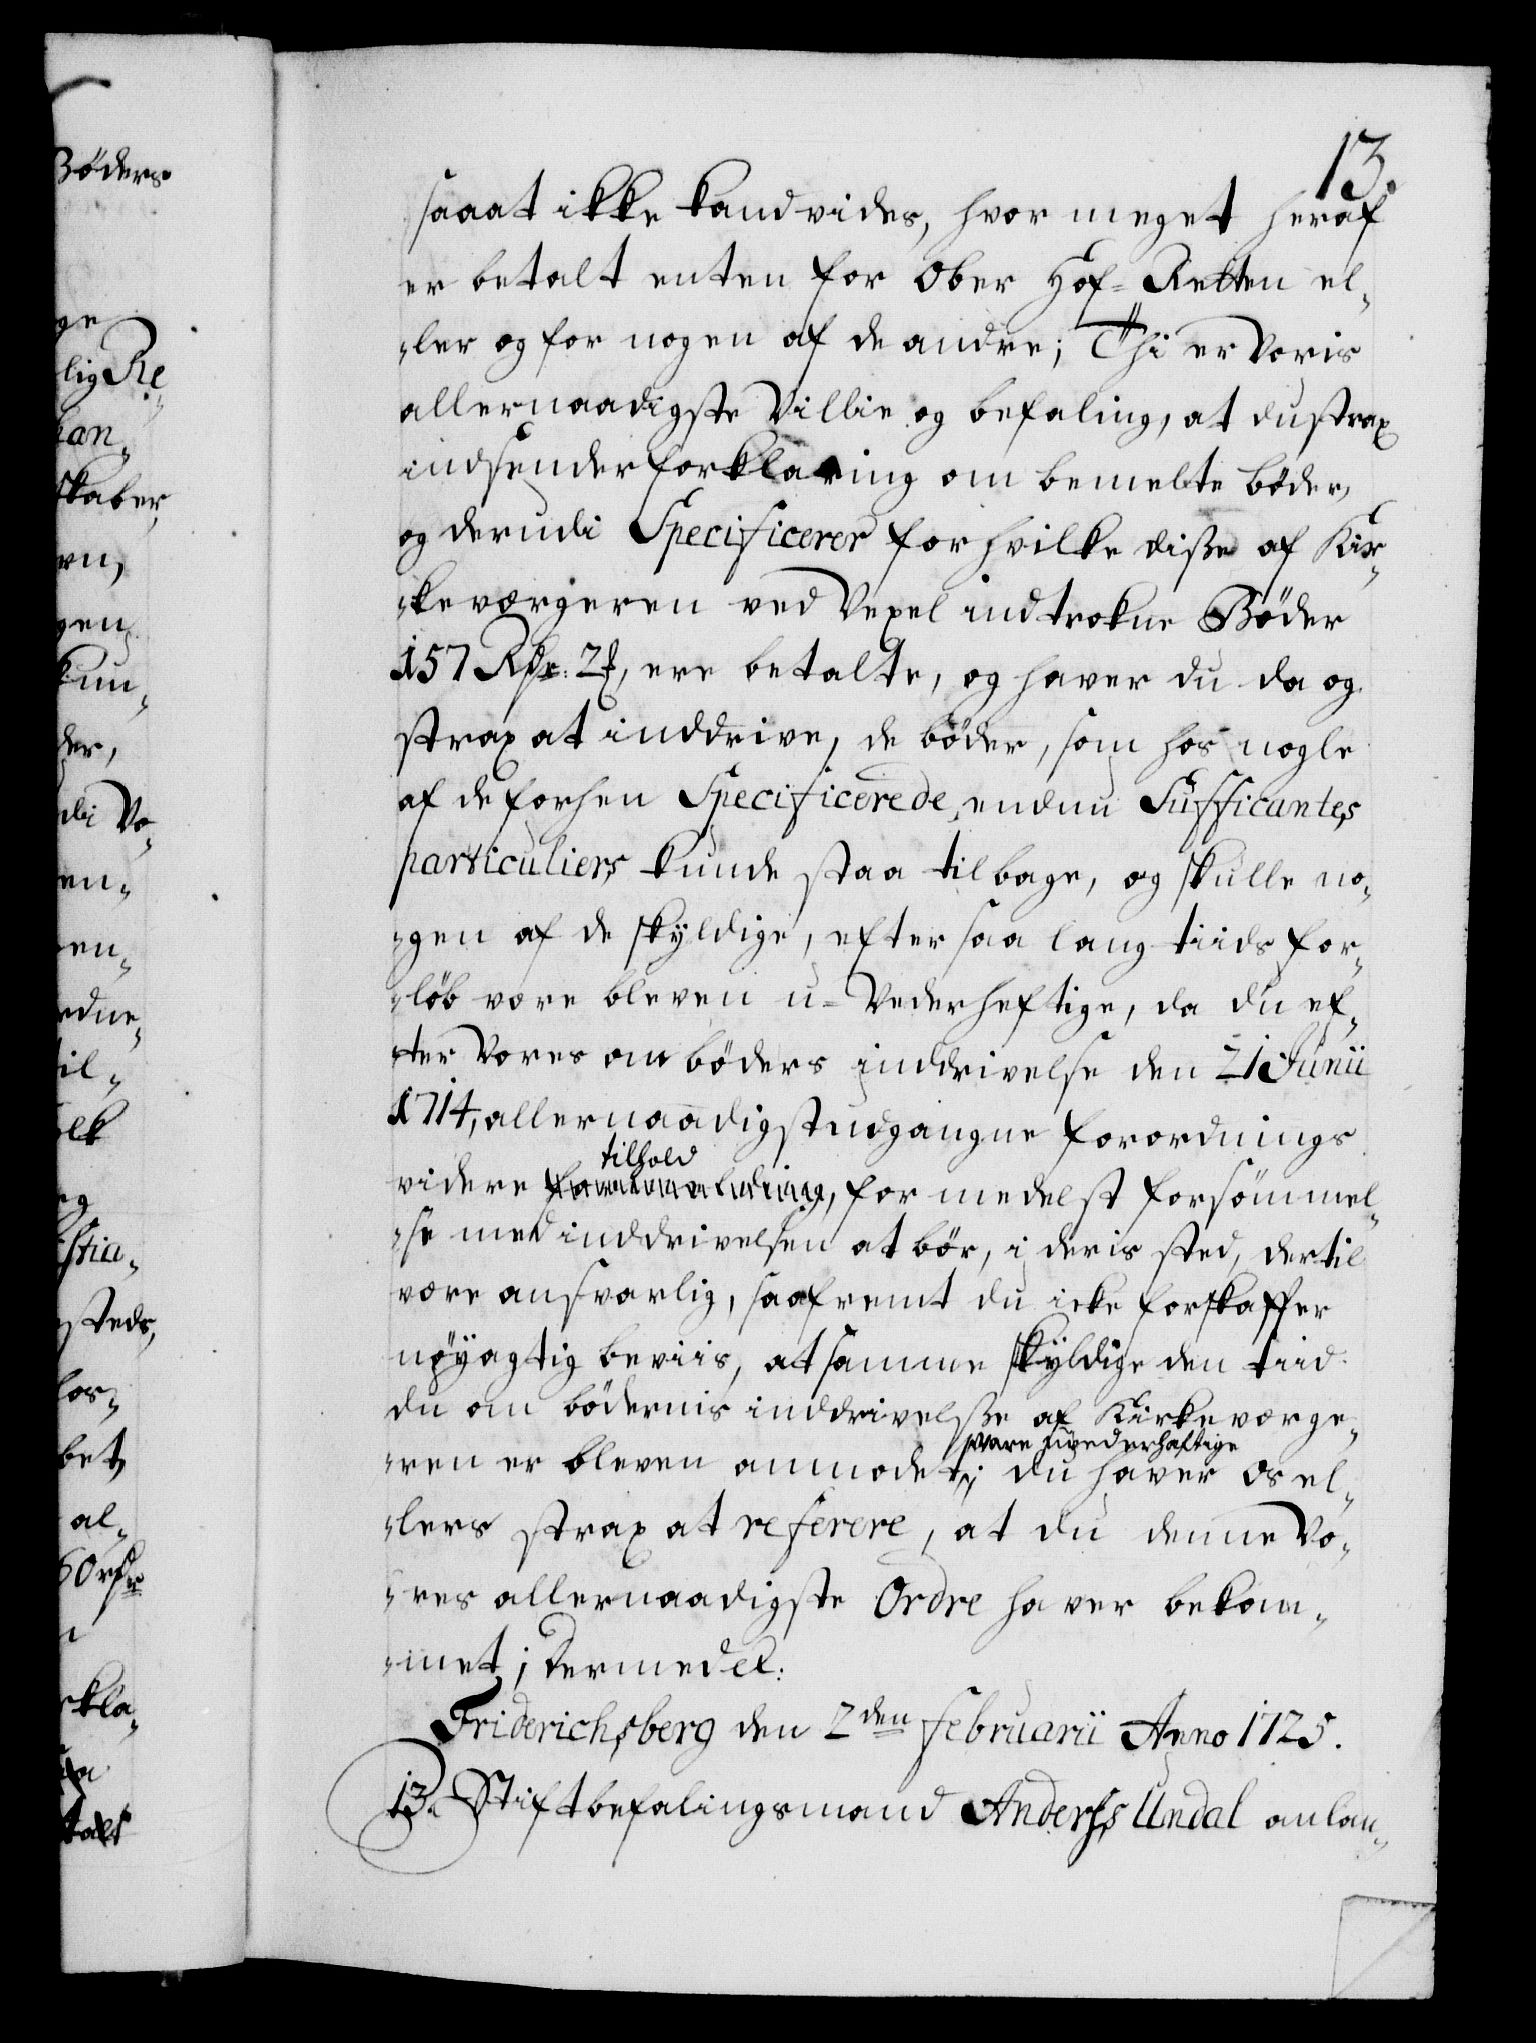 13.
saaat ikke kand vides, hvor meget heraf
er betalt enten for Ober Hof-Retten el-
-ler og for nogen af de andre; Thi er Voris
allernaadigste Villie og befaling, at du strax
indsender forklaring om bemelte bøder,
og derudi Specificerer for hvilke diße af Kir-
-keværgeren ved Vexel indtrokne Bøder
157 Rdr: 2 , ere betalte, og haver du da og
strax at inddrive, de bøder, som hos nogle
af de forhen Specificerede, endnu Sufficantes
particuliers kunde staa tilbage, og skulle no-
-gen af de skyldige, efter saa lang tiids for-
-løb være bleven u-Vederheftige, da du ef-
-ter Vores om bøders inddrivelse den 21 Junii
1714, allernaadigst udgangne forordnings
tilhold
videre , formedelst forsømmel-
-se med inddrivelsen at bør, i deris sted, dertil
være ansvarlig, saafremt du icke forskaffer
nøyagtig beviis, at samme skyldige den tiid
du om bødernis inddrivelße af Kirkeværge-
vare uvederhaftige
-ren er bleven anmodet; du haver os el-
-lers strax at referere, at du denne Vo-
-res allernaadigste Ordre haver bekom-
-met; Dermed el:
Friderichsberg den 2den Februarii Anno 1725.
13. Stiftbefalingsmand Anderss Undal anlan-
Bøders
ge
lig Re-
kan-
skaber,
rn,
gen
kun-
der,
udi Vo-
en-
en-
rdne-
til-
olk
og
stia-
steds,
for-
bet,
al-
60 rdr
rkla-